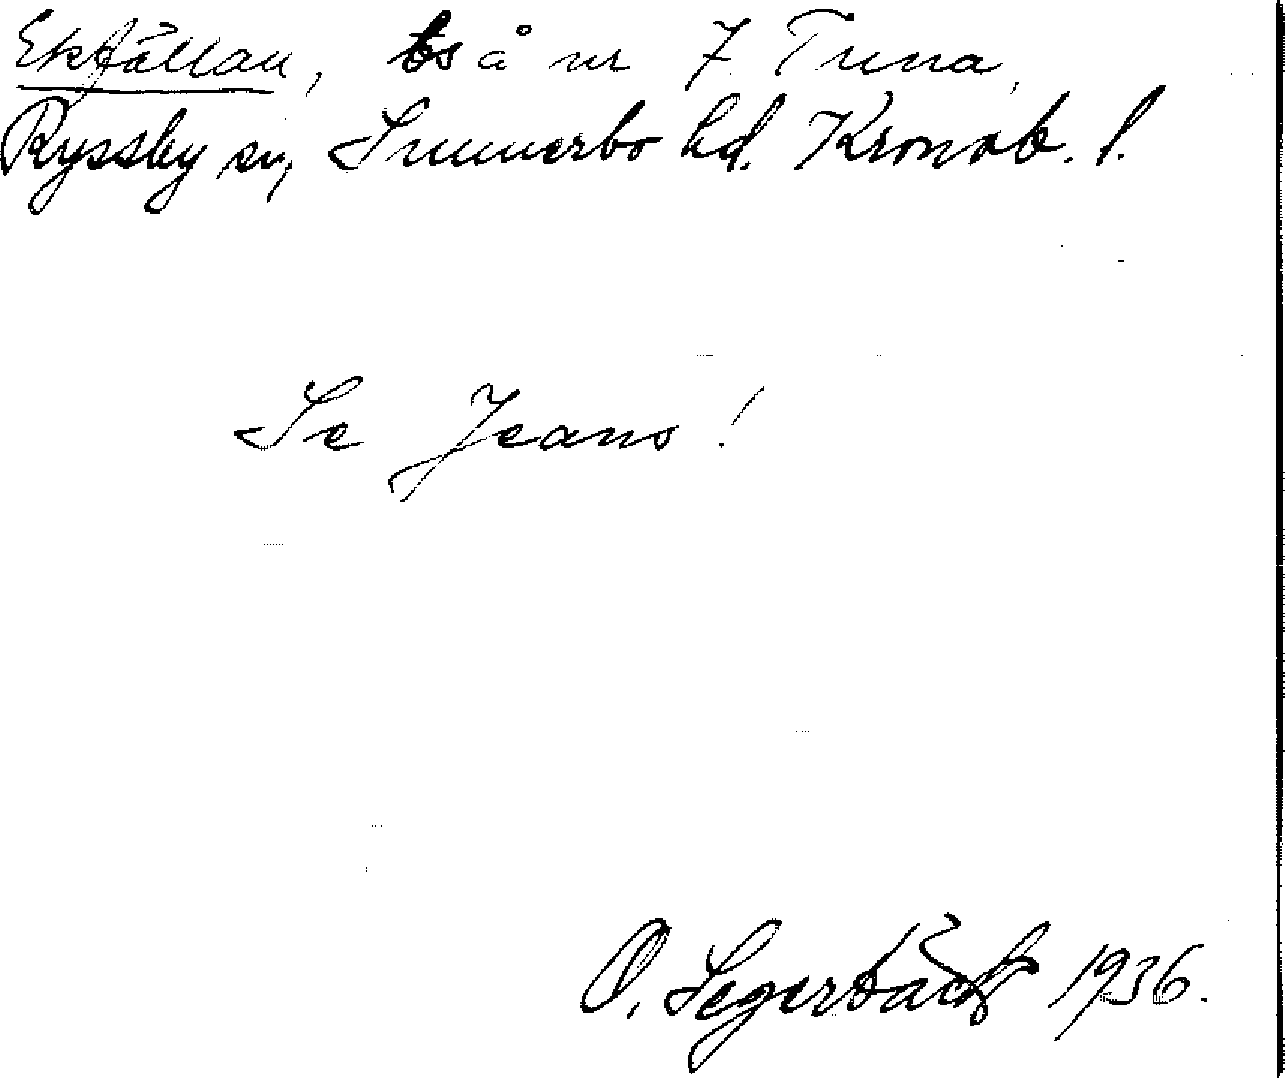 Ekfällan, ts å nr 7 Tuna,
Ryssby sn, Sunnerbo hd. Kronob. l.
Se Jeans!
O. Segerbäck 1936.